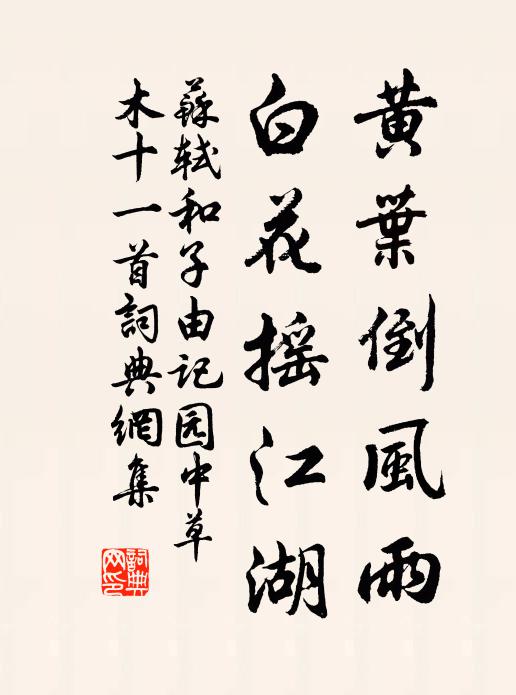 黄葉倒風雨
白花摇江湖
蘇軾和子由记园中草
木十一首詞典網集
詞典
网印